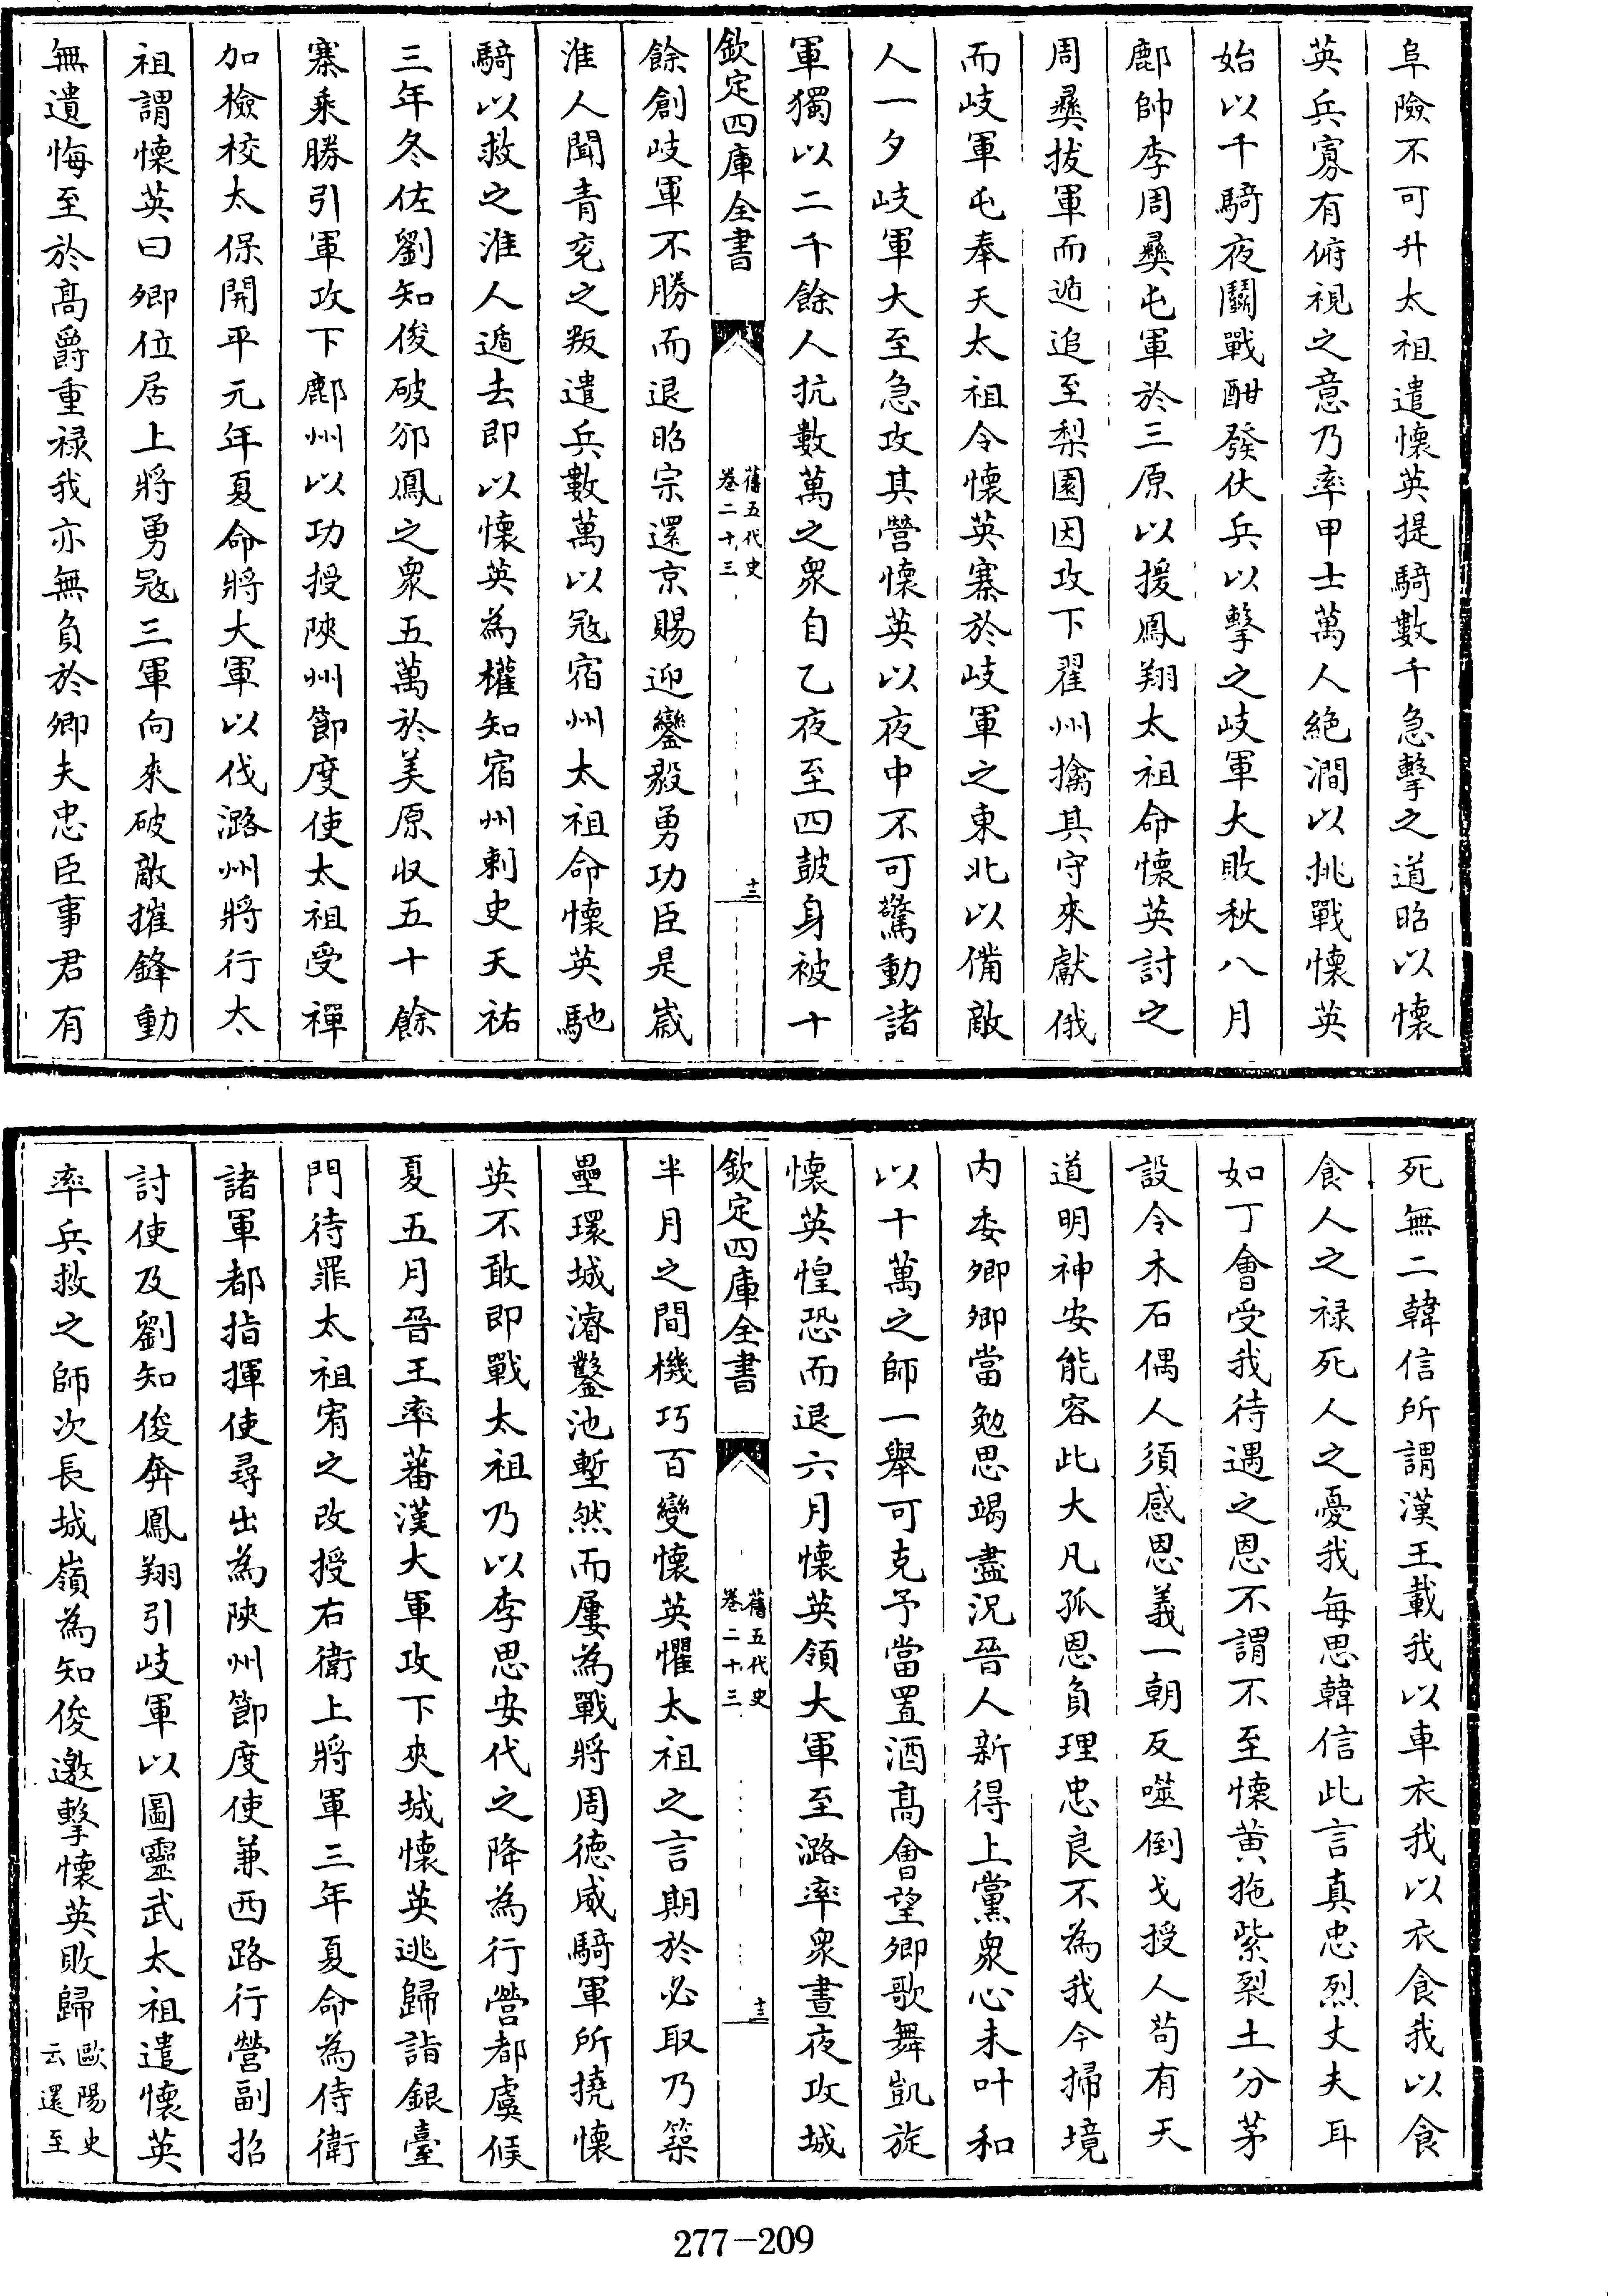 阜險不可升太祖遣懷英提騎數千急擊之道昭以懷
英兵寡有俯視之意乃率甲士萬人絶澗以挑戰懷英
始以千騎夜鬭戰酣發伏兵以擊之岐軍大敗秋八月
鄜帥李周彞屯軍於三原以援鳳翔太祖命懷英討之
周彞拔軍而遁追至梨園因攻下翟州擒其守來獻俄
而岐軍屯奉天太祖令懷英寨於岐軍之東北以備敵
人一夕岐軍大至急攻其營懷英以夜中不可驚動諸
軍獨以二千餘人抗數萬之衆自乙夜至四鼓身被十
欽定四庫全書 舊五代史 卷二十三 十二
餘創岐軍不勝而退昭宗還京賜迎鑾毅勇功臣是歲
淮人聞青兖之叛遣兵數萬以冦宿州太祖命懷英馳
騎以救之淮人遁去即以懷英為權知宿州刺史天祐
三年冬佐劉知俊破邠鳳之衆五萬於美原収五十餘
寨乘勝引軍攻下鄜州以功授陜州節度使太祖受禪
加檢校太保開平元年夏命將大軍以伐潞州將行太
祖謂懷英曰卿位居上將勇冦三軍向來破敵摧鋒動
無遺悔至於髙爵重禄我亦無負於卿夫忠臣事君有
死無二韓信所謂漢王載我以車衣我以衣食我以食
食人之禄死人之憂我每思韓信此言真忠烈丈夫耳
如丁會受我待遇之恩不謂不至懷黄拖紫裂土分茅
設令木石偶人須感恩義一朝反噬倒戈授人苟有天
道明神安能容此大凡孤恩負理忠良不為我今掃境
内委卿卿當勉思竭盡況晉人新得上黨衆心未叶和
以十萬之師一舉可克予當置酒髙會望卿歌舞凱旋
懷英惶恐而退六月懷英領大軍至潞率衆晝夜攻城
欽定四庫全書 舊五代史 卷二十三 十三
半月之間機巧百變懷英懼太祖之言期於必取乃築
壘環城濬鑿池塹然而屢為戰將周德威騎軍所撓懷
英不敢即戰太祖乃以李思安代之降為行營都虞候
夏五月晉王率蕃漢大軍攻下夾城懷英逃歸詣銀臺
門待罪太祖宥之改授右衛上將軍三年夏命為侍衛
諸軍都指揮使尋出為陜州節度使兼西路行營副招
討使及劉知俊奔鳳翔引岐軍以圖靈武太祖遣懷英
率兵救之師次長城嶺為知俊邀擊懷英敗歸歐陽史云還至
277-209